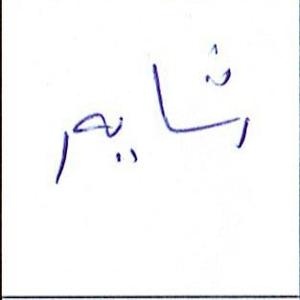 رشايم